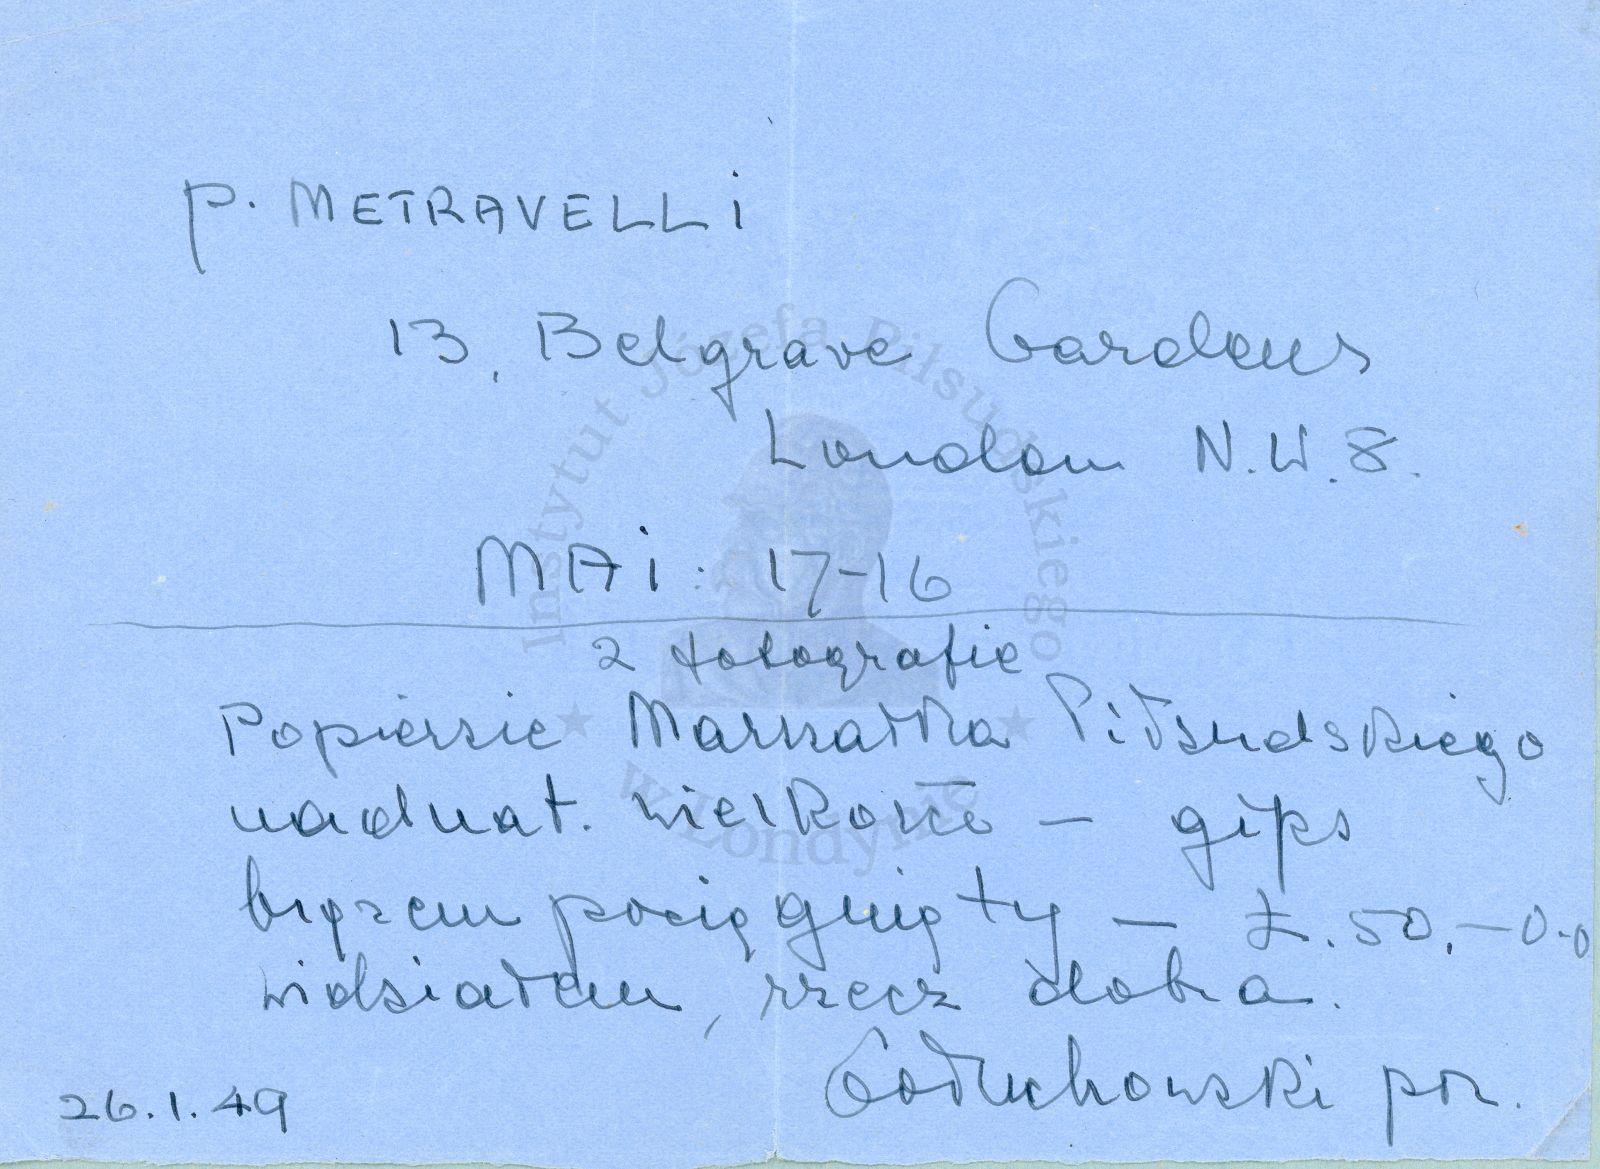 p. METRAVELLi
13, Belgrave Gardens
London N.W.8.
MAi: 17-16
2 fotografie
Popiersie Marszałka Piłsudskiego
nadnat. wielkość – gips
brązem pociągnięty – £.50.-0.0
widziałem, rzecz dobra.
Gołuchowski por.
26.1.49
Instytut Józefa Piłsudskiego
w Londynie